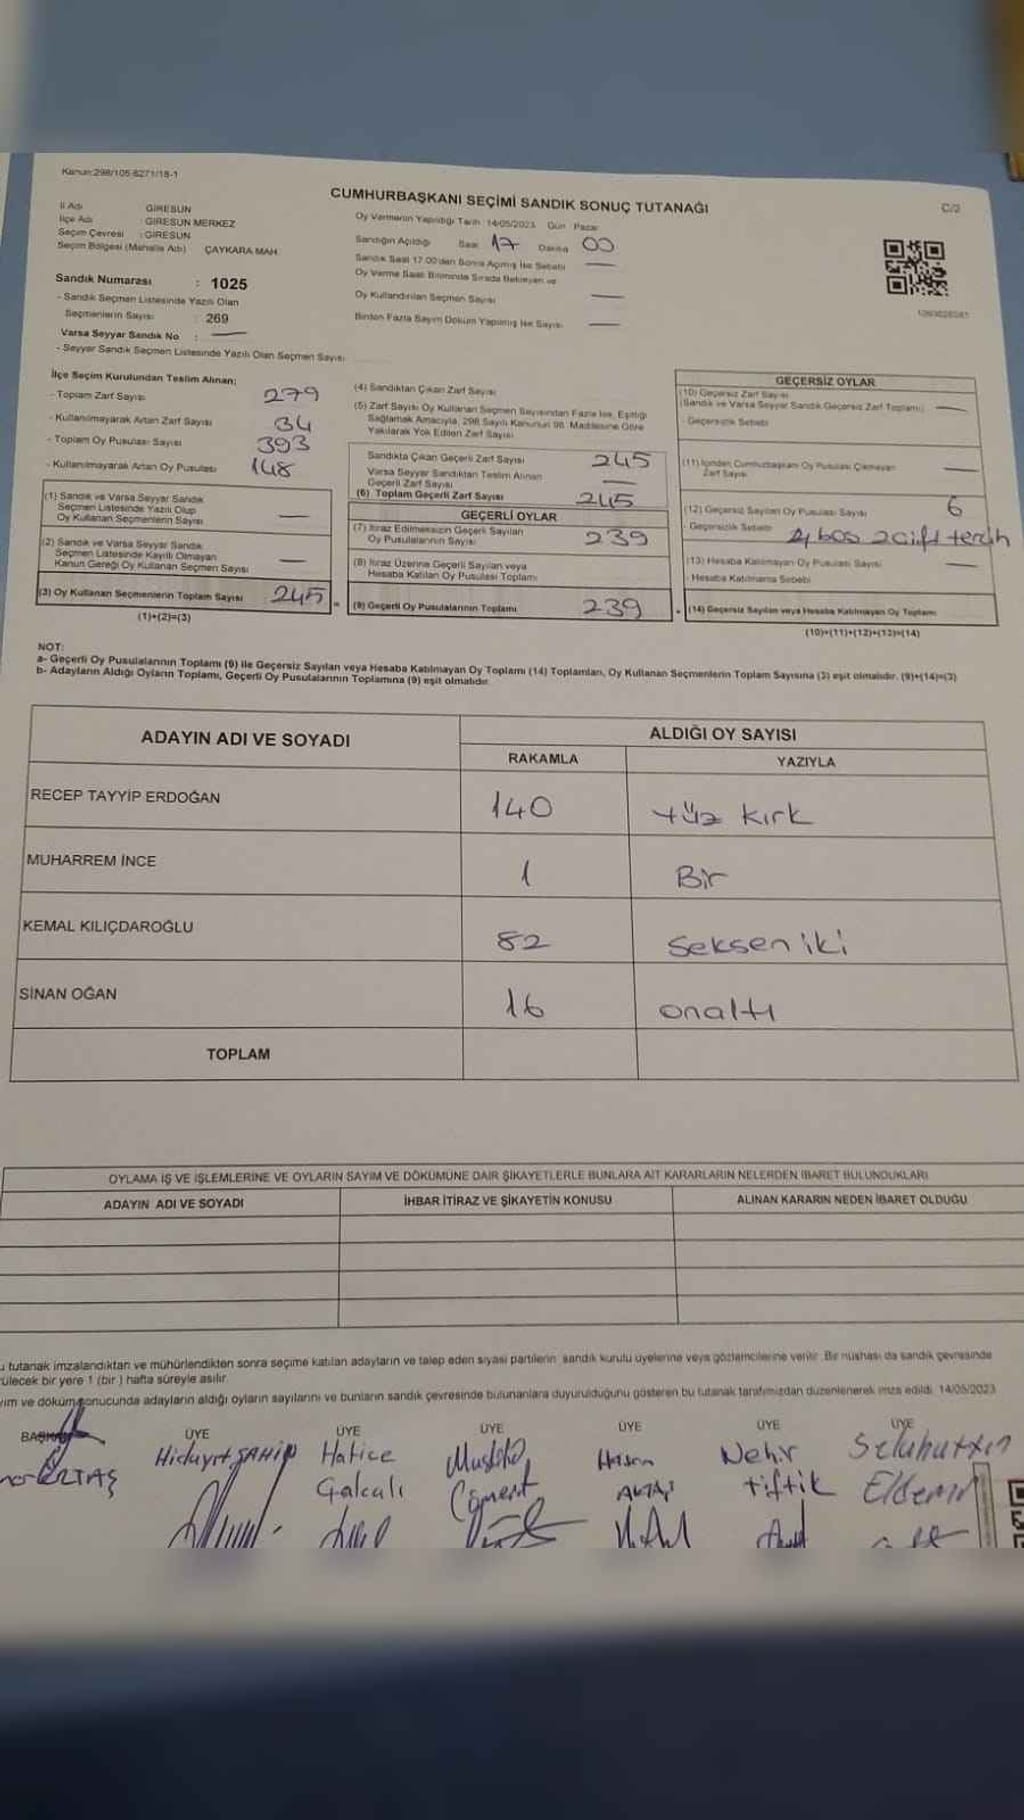 Kanun:298/105-6271/18-1
CUMHURBAŞKANI SEÇİMİ SANDIK SONUÇ TUTANAĞI
C/2
İl Adı GİRESUN
İlçe Adı GİRESUN MERKEZ
Seçim Çevresi : GİRESUN
Seçim Bölgesi (Mahalle Adı) ÇAYKARA MAH.
Oy Vermenin Yapıldığı Tarih : 14/05/2023 Gün Pazar
Sandığın Açıldığı Saat 17 Dakika 00
Sandık Saat 17.00'den Sonra Açılmış İse Sebebi —
Oy Verme Saati Bitiminde Sırada Bekleyen ve
Oy Kullandırılan Seçmen Sayısı —
Birden Fazla Sayım Döküm Yapılmış İse Sayısı —
Sandık Numarası : 1025
- Sandık Seçmen Listesinde Yazılı Olan
Seçmenlerin Sayısı 269
Varsa Seyyar Sandık No : —
- Seyyar Sandık Seçmen Listesinde Yazılı Olan Seçmen Sayısı
İlçe Seçim Kurulundan Teslim Alınan;
- Toplam Zarf Sayısı 279
- Kullanılmayarak Artan Zarf Sayısı 34
- Toplam Oy Pusulası Sayısı 393
- Kullanılmayarak Artan Oy Pusulası 148
(1) Sandık ve Varsa Seyyar Sandık
Seçmen Listesinde Yazılı Olup
Oy Kullanan Seçmenlerin Sayısı —
(2) Sandık ve Varsa Seyyar Sandık
Seçmen Listesinde Kayıtlı Olmayan
Kanun Gereği Oy Kullanan Seçmen Sayısı —
(3) Oy Kullanan Seçmenlerin Toplam Sayısı 245
(1)+(2)=(3)
(4) Sandıktan Çıkan Zarf Sayısı
(5) Zarf Sayısı Oy Kullanan Seçmen Sayısından Fazla İse, Eşitliği
Sağlamak Amacıyla, 298 Sayılı Kanunun 98. Maddesine Göre
Yakılarak Yok Edilen Zarf Sayısı
Sandıkta Çıkan Geçerli Zarf Sayısı 245
Varsa Seyyar Sandıktan Teslim Alınan
Geçerli Zarf Sayısı —
(6) Toplam Geçerli Zarf Sayısı 245
GEÇERLİ OYLAR
(7) İtiraz Edilmeksizin Geçerli Sayılan
Oy Pusulalarının Sayısı 239
(8) İtiraz Üzerine Geçerli Sayılan veya
Hesaba Katılan Oy Pusulası Toplamı
(9) Geçerli Oy Pusulalarının Toplamı 239
GEÇERSİZ OYLAR
(10) Geçersiz Zarf Sayısı
(Sandık ve Varsa Seyyar Sandık Geçersiz Zarf Toplamı) —
- Geçersizlik Sebebi
(11) İçinden Cumhurbaşkanı Oy Pusulası Çıkmayan
Zarf Sayısı —
(12) Geçersiz Sayılan Oy Pusulası Sayısı 6
- Geçersizlik Sebebi 4 boş 2 çift tercih
(13) Hesaba Katılmayan Oy Pusulası Sayısı —
- Hesaba Katılmama Sebebi
(14) Geçersiz Sayılan veya Hesaba Katılmayan Oy Toplamı
(10)+(11)+(12)+(13)=(14)
NOT:
a- Geçerli Oy Pusulalarının Toplamı (9) ile Geçersiz Sayılan veya Hesaba Katılmayan Oy Toplamı (14) Toplamları, Oy Kullanan Seçmenlerin Toplam Sayısına (3) eşit olmalıdır. (9)+(14)=(3)
b- Adayların Aldığı Oyların Toplamı, Geçerli Oy Pusulalarının Toplamına (9) eşit olmalıdır.
ADAYIN ADI VE SOYADI ALDIĞI OY SAYISI
RAKAMLA YAZIYLA
RECEP TAYYİP ERDOĞAN 140 Yüz kırk
MUHARREM İNCE 1 Bir
KEMAL KILIÇDAROĞLU 82 Seksen iki
SİNAN OĞAN 16 onaltı
TOPLAM
OYLAMA İŞ VE İŞLEMLERİNE VE OYLARIN SAYIM VE DÖKÜMÜNE DAİR ŞİKAYETLERLE BUNLARA AİT KARARLARIN NELERDEN İBARET BULUNDUKLARI
ADAYIN ADI VE SOYADI İHBAR İTİRAZ VE ŞİKAYETİN KONUSU ALINAN KARARIN NEDEN İBARET OLDUĞU
u tutanak imzalandıktan ve mühürlendikten sonra seçime katılan adayların ve talep eden siyasi partilerin sandık kurulu üyelerine veya gözlemcilerine verilir. Bir nüshası da sandık çevresinde
rülecek bir yere 1 (bir) hafta süreyle asılır.
yım ve döküm sonucunda adayların aldığı oyların sayılarını ve bunların sandık çevresinde bulunanlara duyurulduğunu gösteren bu tutanak tarafımızdan düzenlenerek imza edildi. 14/05/2023
BAŞKAN ÜYE ÜYE ÜYE ÜYE ÜYE ÜYE
Hidayet ŞAHİN Hatice Galcalı Mustafa Hasan Nehir tiftik Selahattin